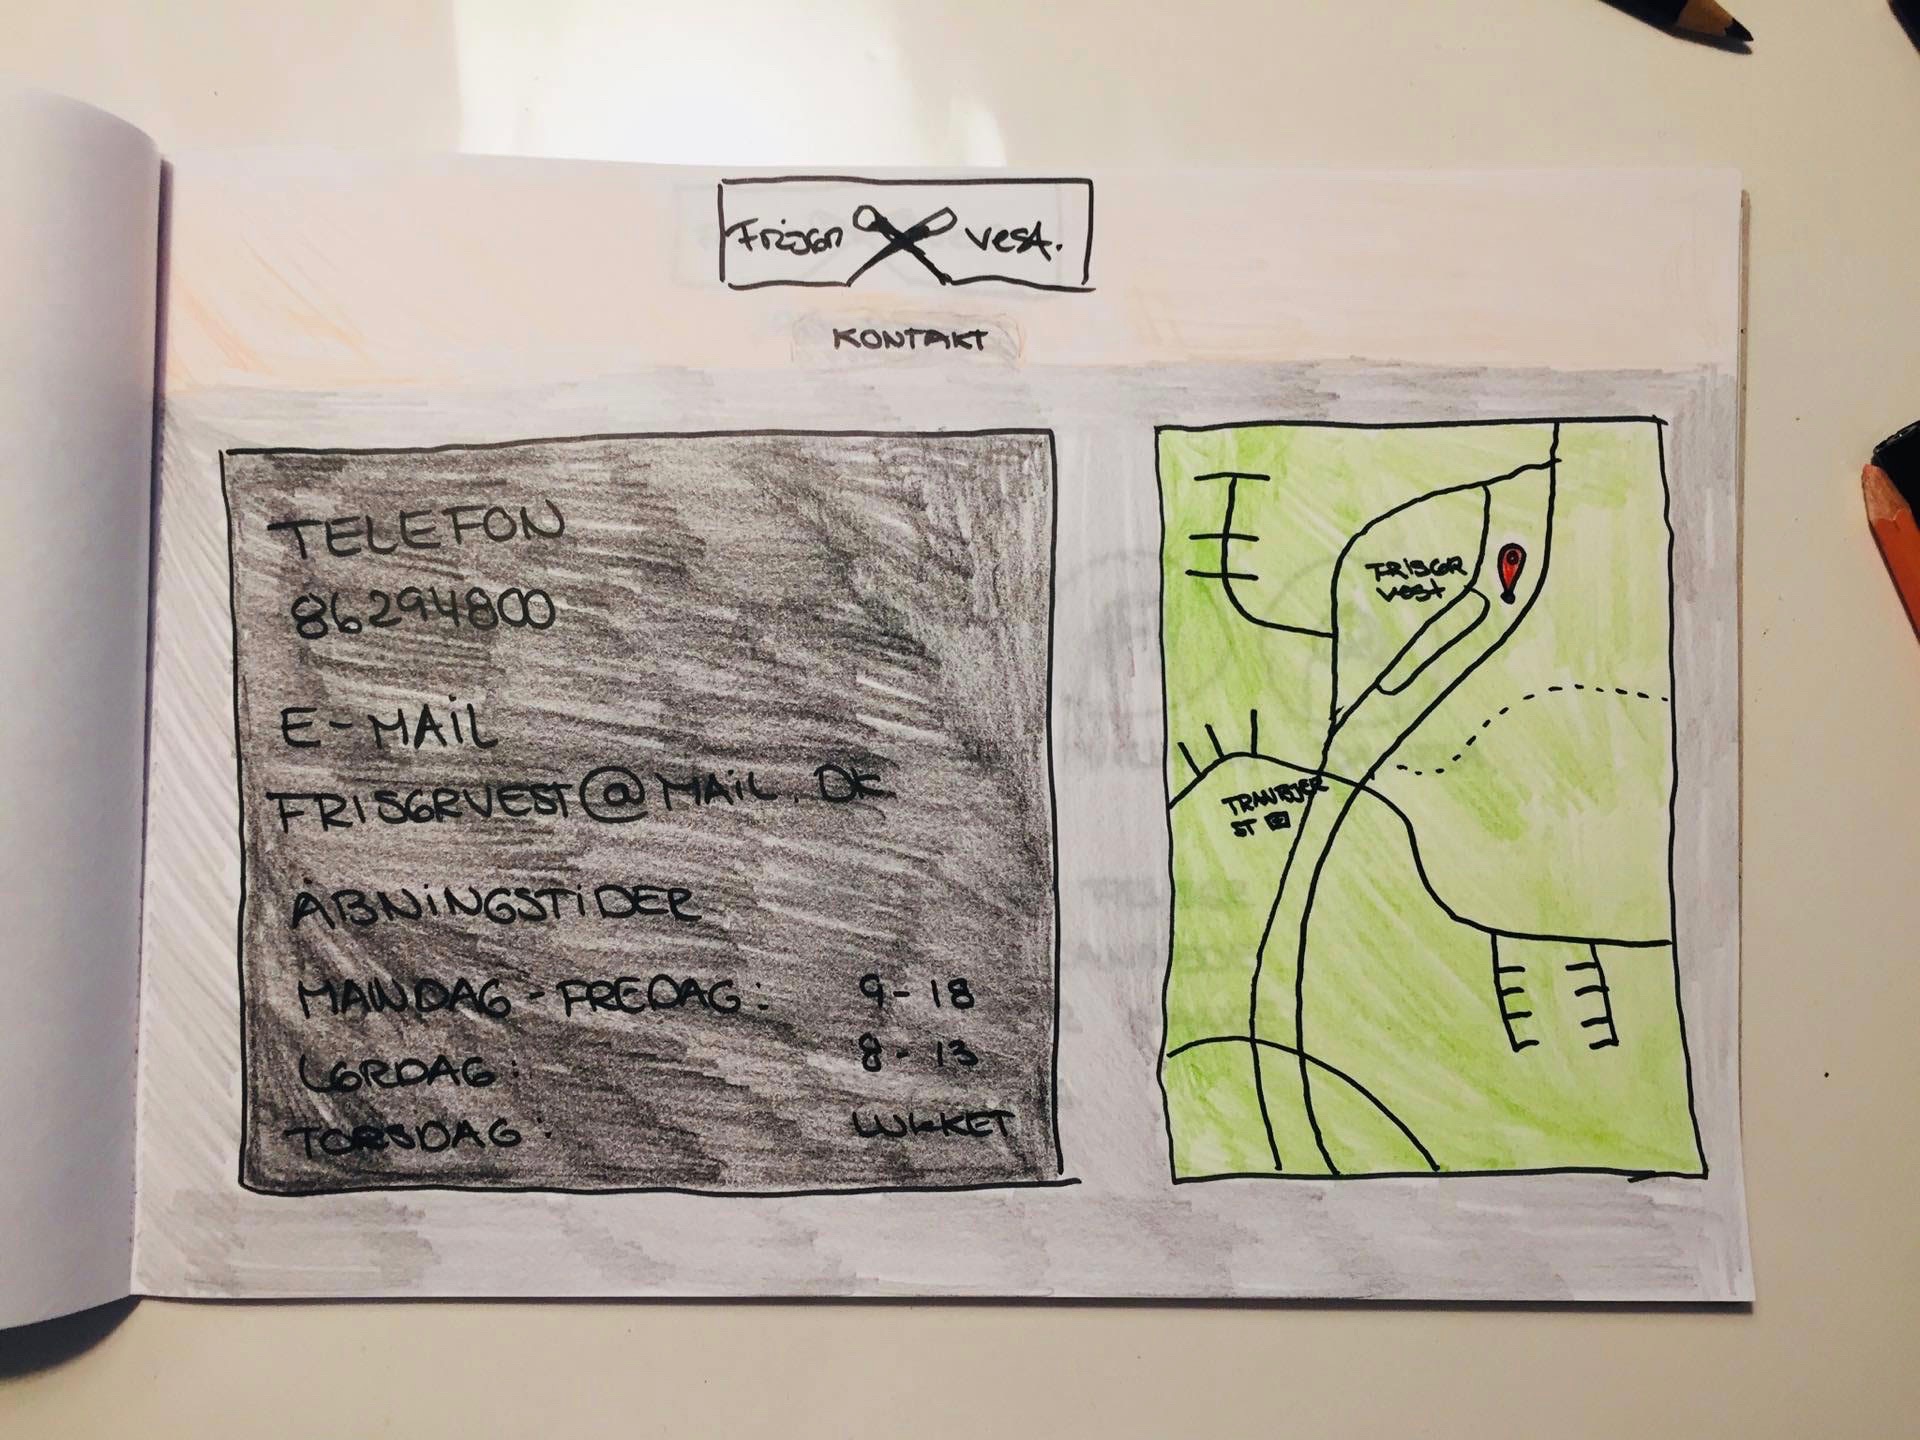 Frisør vest.
KONTAKT
TELEFON
86294800
E-MAIL
FRISØRVEST@MAIL.DK
ÅBNINGSTIDER
MANDAG - FREDAG: 9 - 18
LØRDAG: 8 - 13
TORSDAG: LUKKET
FRISØR
vest
TRANBJER
ST